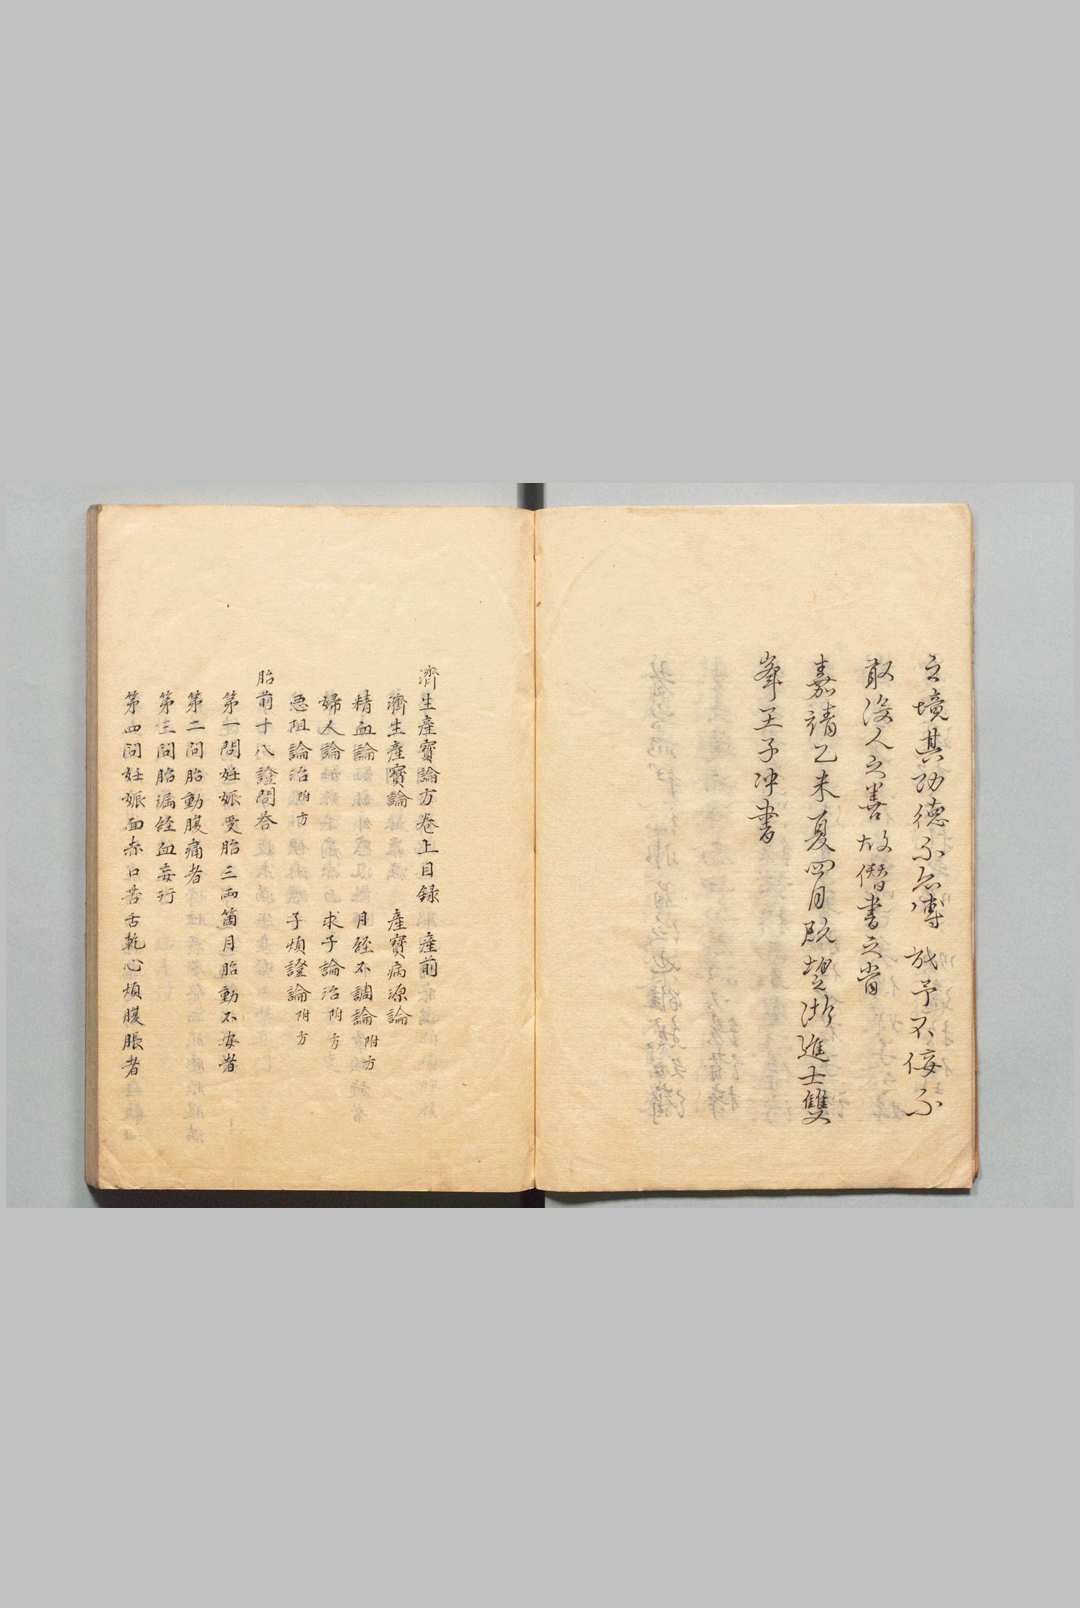 之境其功德不忍博施予不佞不
敢没人之善故僭書之嘗
嘉靖乙未夏四月既望浙進士雙
峯王子冲書
濟生產寶論方卷上目録 產前
濟生產寶論 產寶病源論
精血論 月經不調論附方
婦人論 求子論治附方
惡阻論治附方 子煩證論附方
胎前十八證問答
第一問妊娠受胎三兩箇月胎動不安者
第二問胎動腹痛者
第三問胎漏經血妄行
第四問妊娠面赤口苦舌乾心煩腹脹者